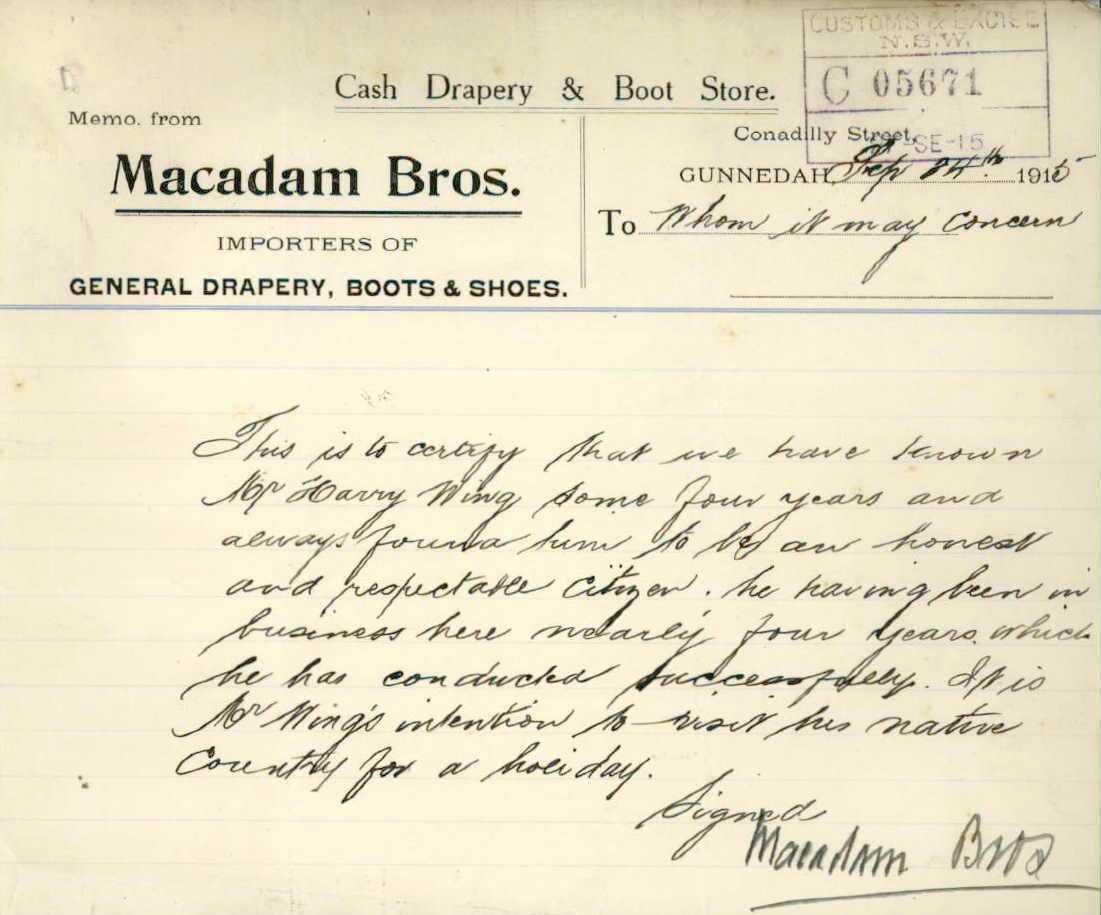 CUSTOMS & EXCISE
N.S.W.
C 05671
-SE-15
Cash Drapery & Boot Store.
Memo. from
Macadam Bros.
IMPORTERS OF
GENERAL DRAPERY, BOOTS & SHOES.
Conadilly Street,
GUNNEDAH 24th 1915
To Whom it may Concern
This is to certify that we have known
Mr Harry Wing some four years and
always found him to be an honest
and respectable Citizen. he having been in
business here nearly four years. which
he has conducted successfully. It is
Mr Wing's intention to visit his native
Country for a holiday.
Signed
Macadam Bros